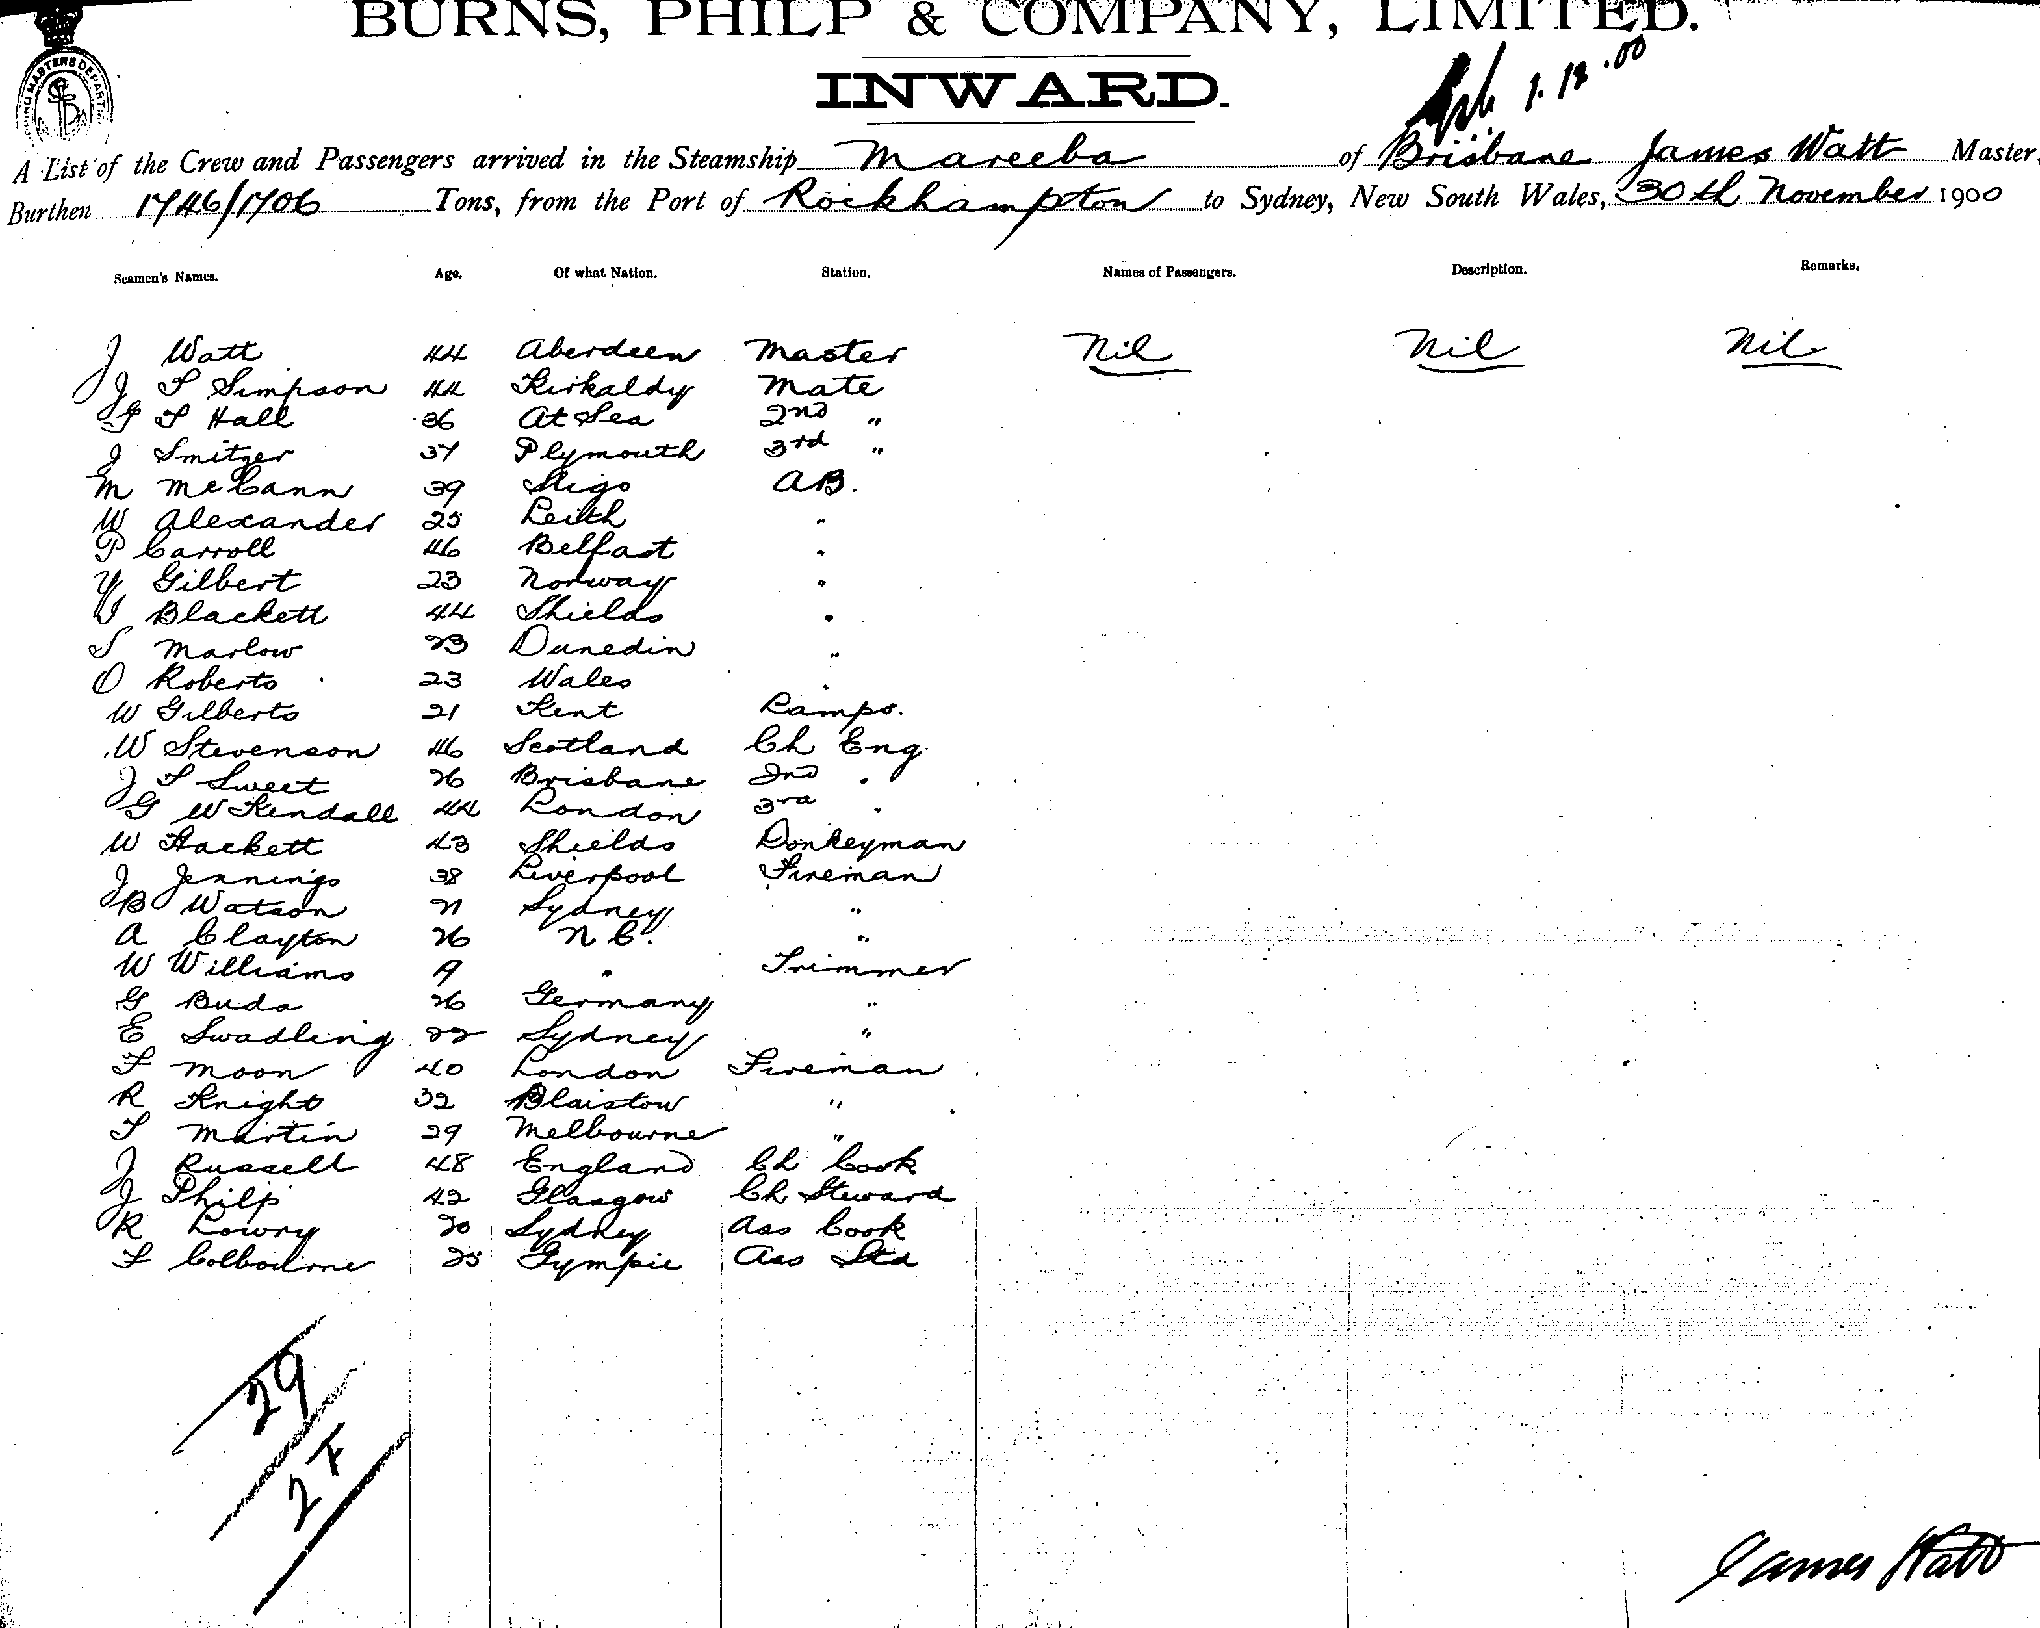 BURNS, PHILP & COMPANY, LIMITED.
INWARD.
1.12.00
A List of the Crew and Passengers arrived in the Steamship Mareeba of Brisbane James Watt Master,
Burthen 1746/1706 Tons, from the Port of Rockhampton to Sydney, New South Wales, 30th November 1900
Seamen's Names. Age. Of what Nation. Station. Names of Passengers. Description. Remarks.
J Watt 44 Aberdeen Master Nil Nil Nil
J T Simpson 44 Kirkaldy Mate
T Hall 36 At Sea 2nd "
J Smitzer 37 Plymouth 3rd "
M McCann 39 Sligo AB.
W Alexander 25 Leith "
P Carroll 46 Belfast "
Y Gilbert 23 Norway "
J Blackett 44 Shields "
S Marlow 23 Dunedin "
O Roberts 23 Wales "
W Gilberts 21 Kent Lamps.
W Stevenson 46 Scotland Ch Eng
J T Sweet 26 Brisbane 2nd "
G W Kendall 44 London 3rd "
W Hackett 43 Shields Donkeyman
J Jennings 38 Liverpool Fireman
B Watson 21 Sydney "
A Clayton 26 N C. "
W Williams 19 " Trimmer
G Buda 26 Germany "
E Swadling 22 Sydney "
F Moon 40 London Fireman
R Knight 32 Blaistow "
T Martin 29 Melbourne "
J Russell 48 England Ch Cook
J Philp 42 Glasgow Ch Steward
R Lowry 20 Sydney Ass Cook
F Colbourne 25 Gympie Ass Std
29
2 F
James Watt